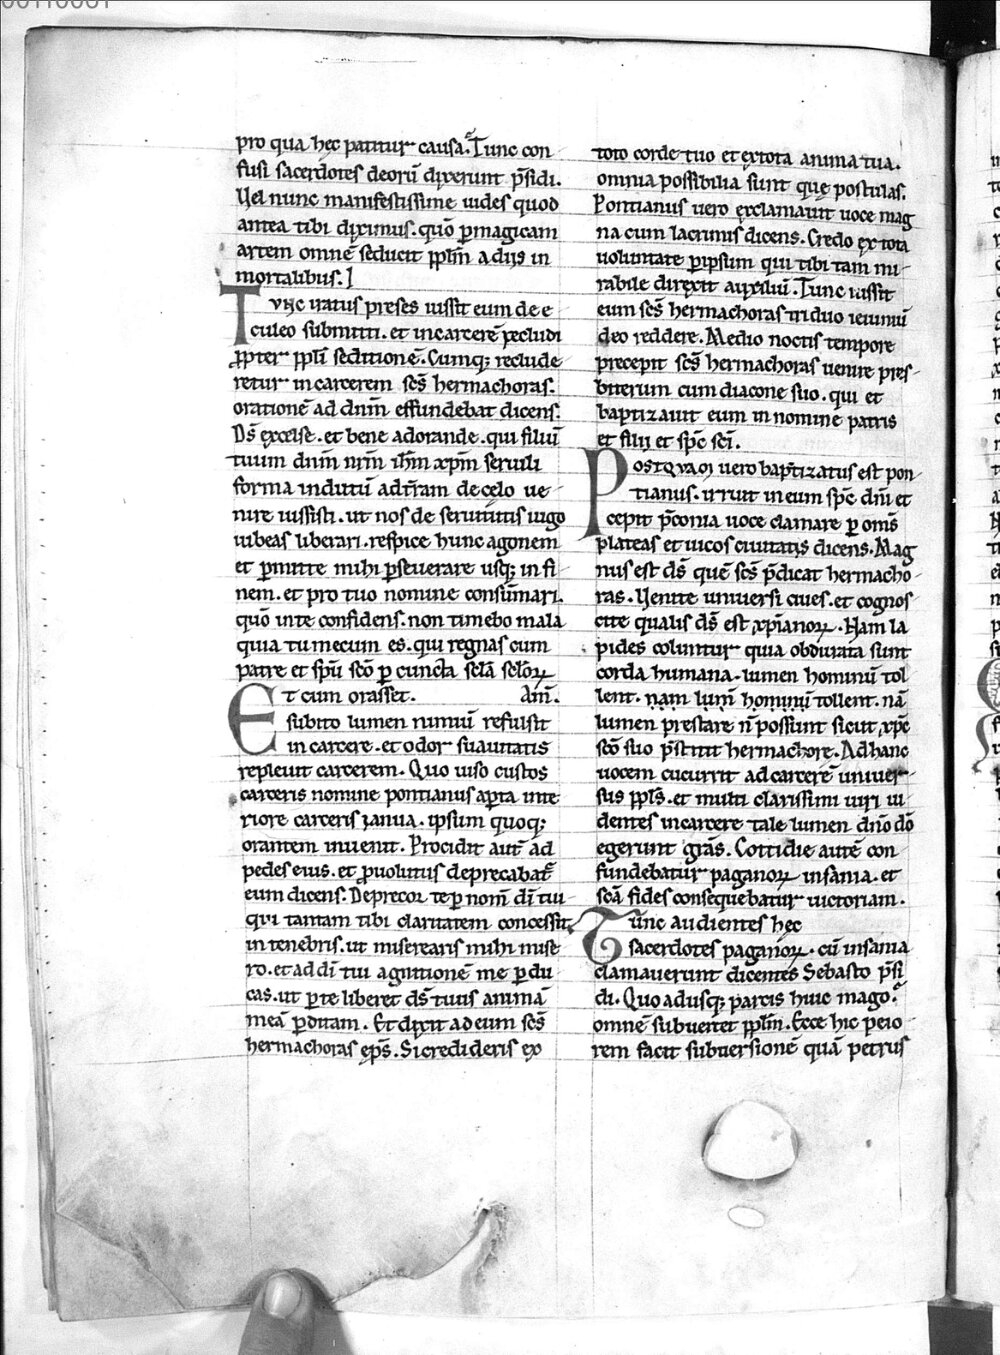 pro qua hęc patitur causa. Tunc con
fusi sacerdotes deorū dixerunt p̄sidi.
Vel nunc manifestissime uides quod
antea tibi diximus. quō ꝑ magicam
artem omnē seducit ppl̄m a diis in
mortalibus.
Tvnc iratus preses iussit eum de e
culeo submitti. et in carcerē recludi
ꝓpter ppl̄i seditionē. Cumq; reclude
retur in carcerem scs̄ hermachoras.
orationē ad dn̄m effundebat dicens.
Ds̄ excelse. et bene adorande. qui filiū
tuum dn̄m nr̄m ih̄m xp̄m seruili
forma indutū ad t̄ram de celo ue
nire iussisti. ut nos de seruitutis iugo
iubeas liberari. respice hunc agonem
et ꝑmitte mihi ꝑseuerare usq; in fi
nem. et pro tuo nomine consūmari.
quō in te confidens. non timebo mala
quia tu mecum es. qui regnas cum
patre et spū scō ꝑ cuncta sclā sclōꝝ
Et cum orasset. Am̄.
subito lumen nimiū refulsit
in carcere. et odor suauitatis
repleuit carcerem. Quo uiso custos
carceris nomine pontianus aꝑta inte
riore carceris ianua. ipsum quoq;
orantem inuenit. Procidit aut̄ ad
pedes eius. et ꝓuolutus deprecabat̄
eum dicens. Deprecor te ꝑ nom̄ dī tui
qui tantam tibi claritatem concessit
in tenebris. ut miserearis mihi mise
ro. et ad dī tui agnitionē me ꝑdu
cas. ut ꝑ te liberet ds̄ tuus animā
meā ꝑditam. Et dixit ad eum scs̄
hermachoras ep̄s. Si credideris ex
toto corde tuo et ex tota anima tua.
omnia possibilia sunt quę postulas.
Pontianus uero exclamauit uoce mag
na cum lacrimis dicens. Credo ex tota
uoluntate ꝑ ipsum qui tibi tam mi
rabile direxit auxiliū. Tunc iussit
eum scs̄ hermachoras triduo ieiuniū
deo reddere. Medio noctis tempore
precepit scs̄ hermachoras uenire pres
biterum cum diacone suo. qui et
baptizauit eum in nomine patris
et filii et sp̄c scī.
Postqvam uero baptizatus est pon
tianus. irruit in eum sp̄c dn̄i et
cepit p̄conia uoce clamare ꝑ oms̄
plateas et uicos ciuitatis dicens. Mag
nus est ds̄ quē scs̄ p̄dicat hermacho
ras. Venite uniuersi ciues. et cognos
cite qualis ds̄ est xp̄ianoꝝ. Nam la
pides coluntur quia obdurata sunt
corda humana. lumen hominū tol
lent. nam lum̄ hominū tollent. nā
lumen prestare n̄ possunt sicut xp̄c
scō suo p̄stitit hermachorę. Ad hanc
uocem cucurrit ad carcerē uniuer
sus ppl̄s. et multi clarissimi uiri ui
dentes in carcere tale lumen dn̄o dō
egerunt grās. Cottidie autē con
fundebatur paganoꝝ insania. et
scā fides consequebatur uictoriam.
Tunc audientes hęc
sacerdotes paganoꝝ. cū insania
clamauerunt dicentes Sebasto p̄si
di. Quo adusq; parcis huic mago.
omnē subuertet ppl̄m. Ecce hic peio
rem facit subuersionē quā petrus